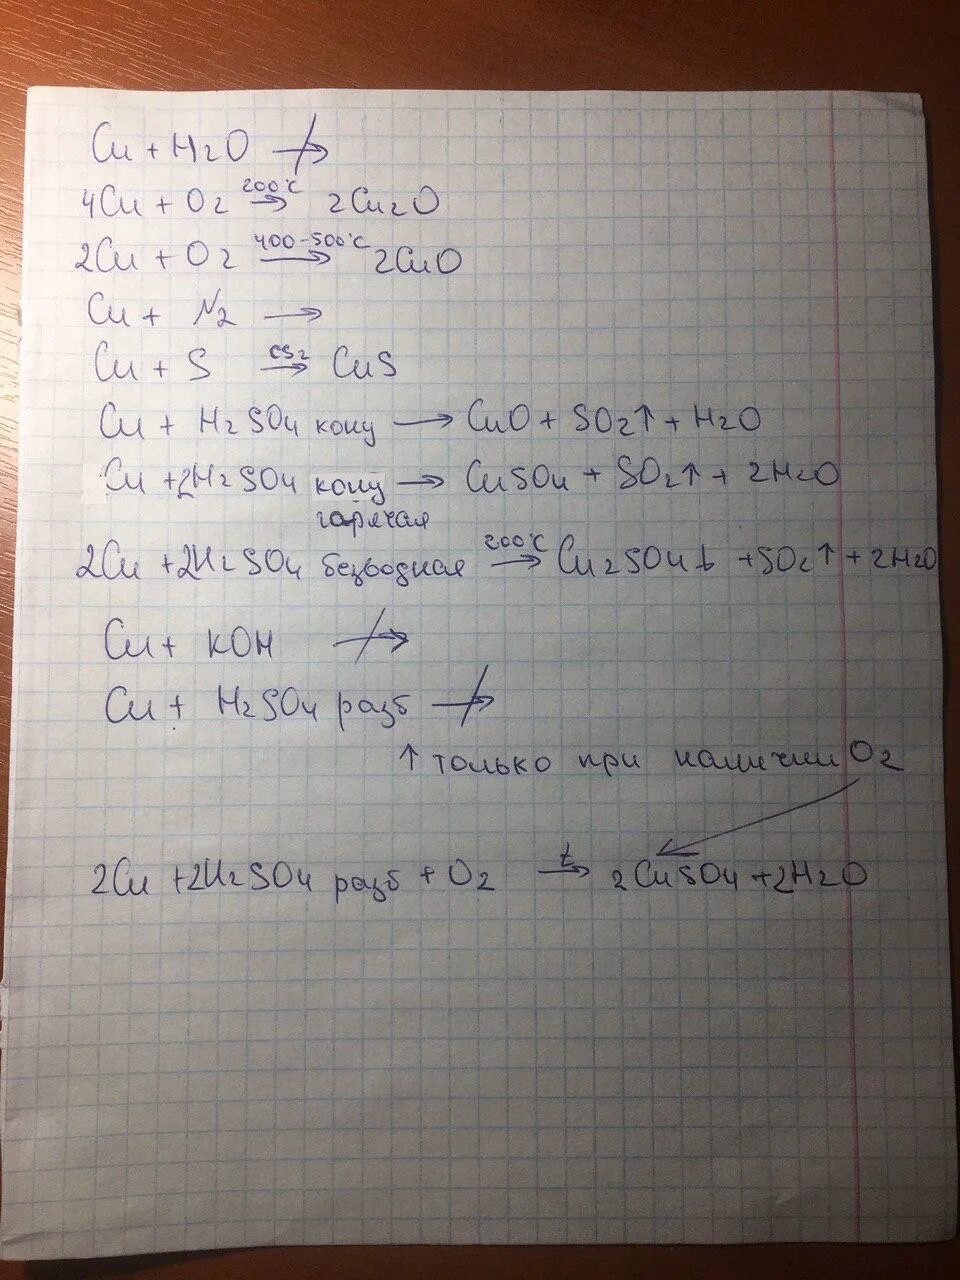 Cu + H2O ↛
4Cu + O2 200°C → 2Cu2O
2Cu + O2 400-500°C → 2CuO
Cu + N2 →
Cu + S CS2 → CuS
Cu + H2SO4 конц → CuO + SO2↑ + H2O
Cu + 2H2SO4 конц → CuSO4 + SO2↑ + 2H2O
горячая
2Cu + 2H2SO4 безводная 200°C → Cu2SO4↓ + SO2↑ + 2H2O
Cu + KOH ↛
Cu + H2SO4 разб ↛
↑ только при наличии O2
2Cu + 2H2SO4 разб + O2 t → 2CuSO4 + 2H2O